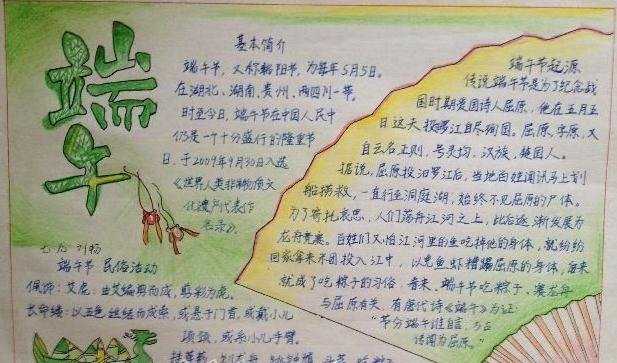 端午
基本简介
端午节，又称端阳节，为每年5月5。
在湖北、湖南、贵州、四川一带。
时至今日，端午节在中国人民中
仍是一个十分盛行的隆重节
日，于2009年9月30日入选
《世界人类非物质文
化遗产代表作
名录》。
端午节 民俗活动
佩饰：艾虎：由艾编剪而成，剪彩为虎。
长命缕：以五色丝结而成索，或悬于门首，或戴小儿
项颈，或系小儿手臂。
端午节起源
传说端午节是为了纪念战
国时期爱国诗人屈原，他在五月五
日这天投汨罗江自尽殉国。屈原，字原，又
自云名正则，号灵均，汉族，楚国人。
据说，屈原投汨罗江后，当地百姓闻讯马上划
船捞救，一直行至洞庭湖，始终不见屈原的尸体。
为了寄托哀思，人们荡舟江河之上，此后逐渐发展为
龙舟竞赛。百姓们又怕江河里的鱼吃掉他的身体，就纷纷
回家拿来米团投入江中，以免鱼虾糟蹋屈原的身体，后来
就成了吃粽子的习俗。看来，端午节吃粽子、赛龙舟
与屈原有关，有唐代诗《端午》为证：
"节分端午谁自言，万古
传闻为屈原。"